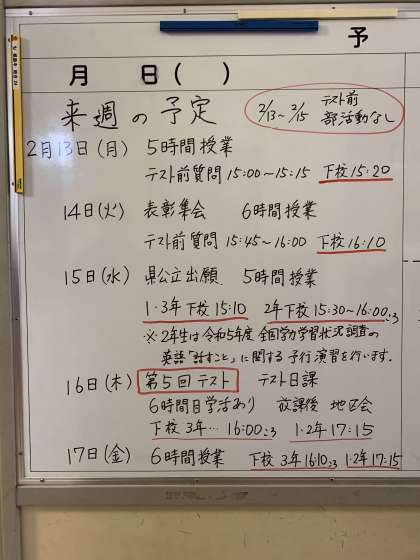 予
月 日( )
来週の予定
2/13~2/15 テスト前
部活動なし
2月13日(月) 5時間授業
テスト前質問 15:00~15:15 下校15:20
14日(火) 表彰集会 6時間授業
テスト前質問 15:45~16:00 下校16:10
15日(水) 県公立出願 5時間授業
1・3年下校15:10 2年下校15:30~16:00ごろ
※2年生は令和5年度 全国学力学習状況調査の
英語「話すこと」に関する予行演習を行います。
16日(木) 第5回テスト テスト日課
6時間目学活あり 放課後 地区会
下校 3年… 16:00ごろ 1・2年17:15
17日(金) 6時間授業 下校 3年16:10ごろ 1・2年17:15